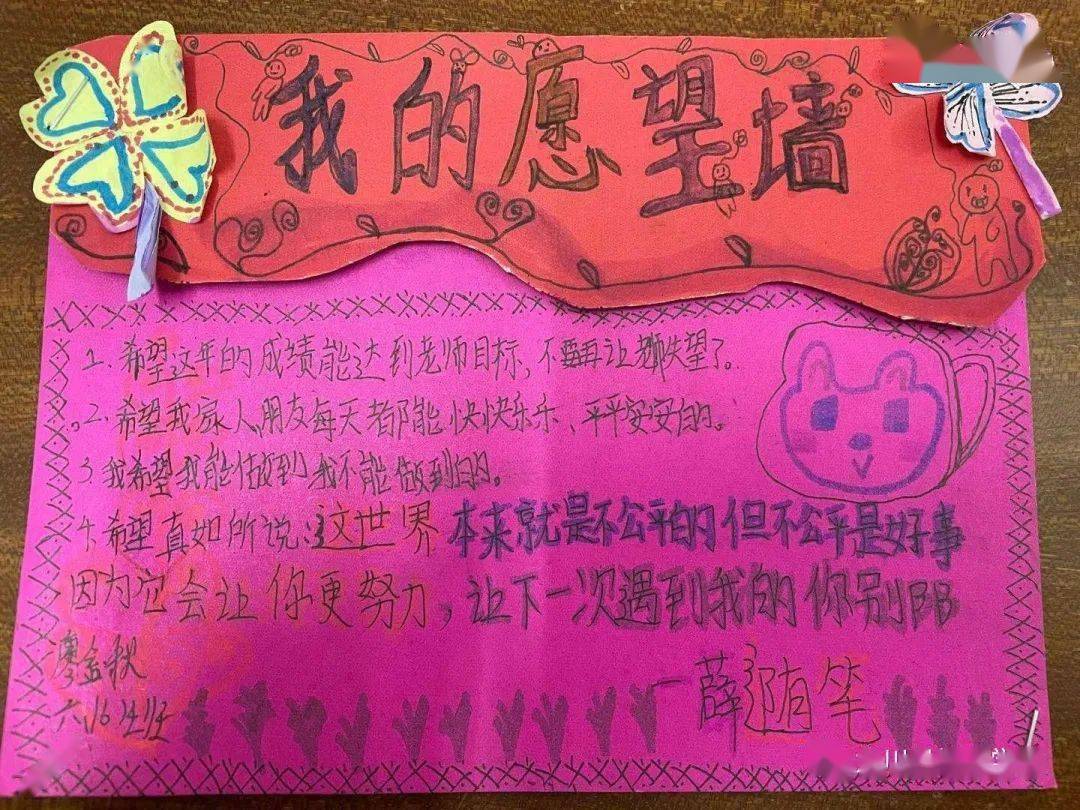 我的愿望墙
1. 希望这年的成绩能达到老师目标，不要再让老师失望了。
2. 希望我家人、朋友每天都能快快乐乐、平平安安的。
3. 我希望我能做到我不能做到的。
4. 希望真如所说：这世界本来就是不公平的但不公平是好事
因为它会让你更努力，让下一次遇到我的你别
—薛随笔
廖金秋
六